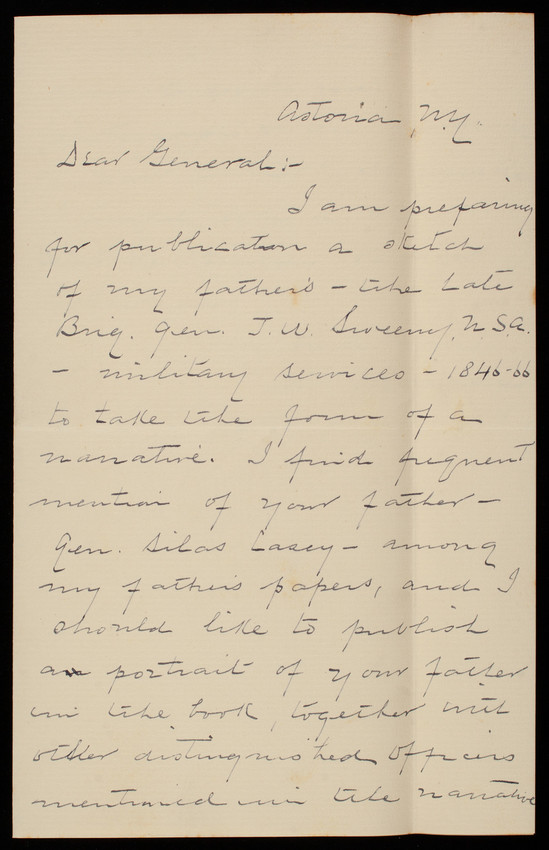 Astoria N.Y.
Dear General:-
I am preparing
for publication a sketch
of my father's - the late
Brig. Gen. T. W. Sweeny, U.S.A.
- military services - 1846-66
to take the form of a
narrative. I find frequent
mention of your father -
Gen. Silas Casey - among
my father's papers, and I
should like to publish
a portrait of your father
in the book, together with
other distinguished officers
mentioned in the narrative